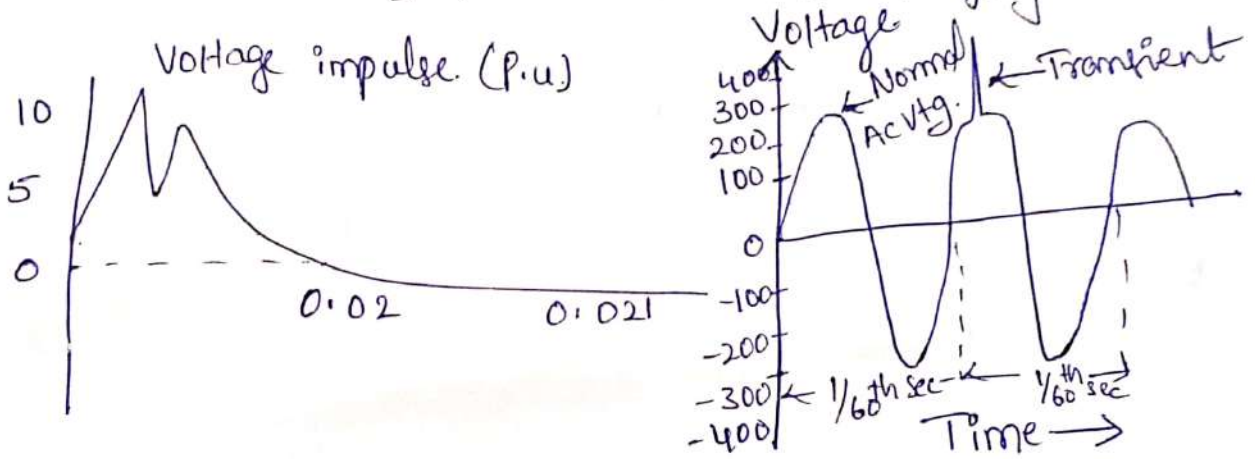 Voltage impulse. (P.u)
10
5
0
0.02
0.021
Voltage
400
300
200
100
0
-100
-200
-300
-400
Normal
AC Vtg.
Transient
1/60th sec
1/60th sec
Time